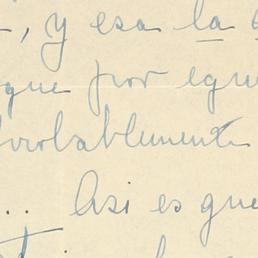 , y esa la
que por equi
probablemente
... Asi es que